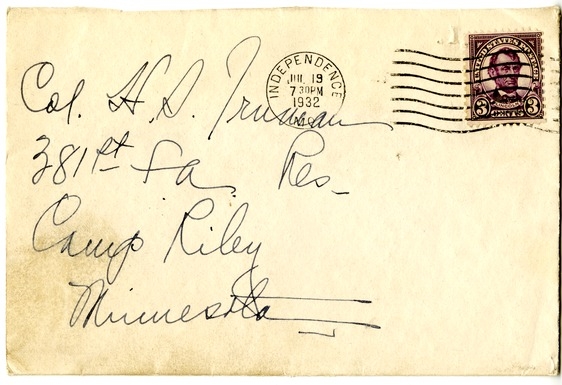 INDEPENDENCE
JUL 19
7 30PM
1932
MO.
UNITED STATES POSTAGE
LINCOLN
3 CENTS 3
Col. H. S. Truman
381st F.a. Res_
Camp Riley
Minnesota